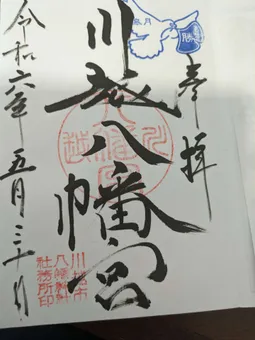 奉拝
川越八幡宮
令和六年五月三十日
川越市
八幡神社
社務所印
勝